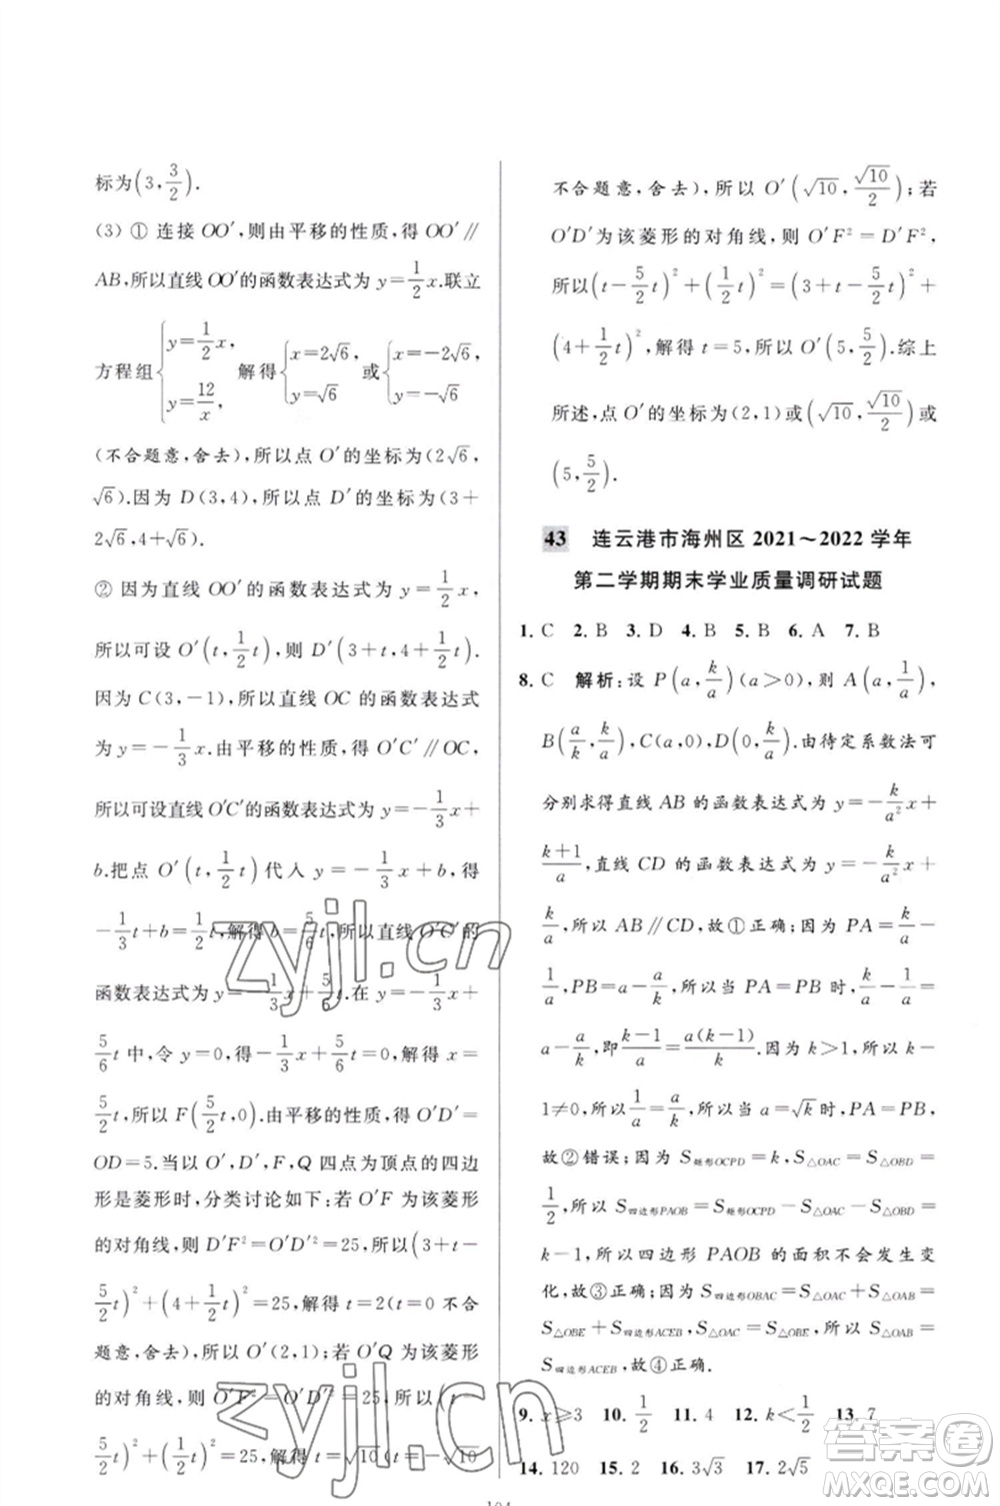 标为(3,3/2).
(3) ① 连接 OO′,则由平移的性质,得 OO′∥
AB,所以直线 OO′的函数表达式为 y=1/2x.联立
方程组{y=1/2x, y=12/x, 解得{x=2√6, y=√6 或{x=-2√6, y=-√6
(不合题意,舍去),所以点 O′的坐标为(2√6,
√6).因为 D(3,4),所以点 D′的坐标为(3+
2√6,4+√6).
② 因为直线 OO′的函数表达式为 y=1/2x,所
以可设 O′(t,1/2t),则 D′(3+t,4+1/2t).
因为 C(3,-1),所以直线 OC 的函数表达式
为 y=-1/3x.由平移的性质,得 O′C′∥OC,
所以可设直线 O′C′的函数表达式为 y=-1/3x+
b.把点 O′(t,1/2t)代入 y=-1/3x+b,得
-1/3t+b=1/2t,解得 b=5/6t,所以直线 O′C′的
函数表达式为 y=-1/3x+5/6t.在 y=-1/3x+
5/6t 中,令 y=0,得-1/3x+5/6t=0,解得 x=
5/2t,所以 F(5/2t,0).由平移的性质,得 O′D′=
OD=5.当以 O′,D′,F,Q 四点为顶点的四边
形是菱形时,分类讨论如下:若 O′F 为该菱形
的对角线,则 D′F²=O′D′²=25,所以(3+t-
5/2t)²+(4+1/2t)²=25,解得 t=2(t=0 不合
题意,舍去),所以 O′(2,1);若 O′Q 为该菱形
的对角线,则 O′F²=O′D′²=25,所以(t-
5/2t)²+(1/2t)²=25,解得 t=√10(t=-√10
不合题意,舍去),所以 O′(√10,√10/2);若
O′D′为该菱形的对角线,则 O′F²=D′F²,
所以(t-5/2t)²+(1/2t)²=(3+t-5/2t)²+
(4+1/2t)²,解得 t=5,所以 O′(5,5/2).综上
所述,点 O′的坐标为(2,1)或(√10,√10/2)或
(5,5/2).
43 连云港市海州区 2021～2022 学年
第二学期期末学业质量调研试题
1. C 2. B 3. D 4. B 5. B 6. A 7. B
8. C 解析:设 P(a,k/a)(a>0),则 A(a,1/a),
B(a/k,k/a),C(a,0),D(0,k/a).由待定系数法可
分别求得直线 AB 的函数表达式为 y=-k/a²x+
(k+1)/a,直线 CD 的函数表达式为 y=-k/a²x+
k/a,所以 AB∥CD,故①正确;因为 PA=k/a-
1/a,PB=a-a/k,所以当 PA=PB 时,k/a-1/a=
a-a/k,即(k-1)/a=a(k-1)/k.因为 k>1,所以 k-
1≠0,所以1/a=a/k,所以当 a=√k时,PA=PB,
故②错误;因为 S矩形OCPD=k,S△OAC=S△OBD=
1/2,所以 S四边形PAOB=S矩形OCPD-S△OAC-S△OBD=
k-1,所以四边形 PAOB 的面积不会发生变
化,故③正确;因为 S四边形OBAC=S△OAB+S△OAC=
S△OBE+S四边形ACEB,S△OAC=S△OBE,所以 S△OAB=
S四边形ACEB,故④正确.
9. x≥3 10. 1/2 11. 4 12. k<1/2 13. 7
14. 120 15. 2 16. 3√3 17. 2√5
104
zyjl.cn
zyjl.cn
答案圈
MXQE.COM